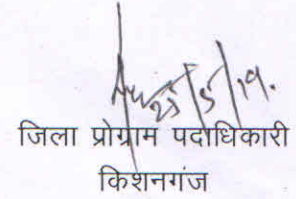 25/5/19.
जिला प्रोग्राम पदाधिकारी
किशनगंज